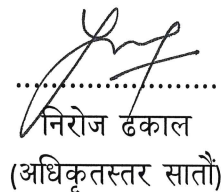 निरोज ढकाल
(अधिकृतस्तर सातौं)